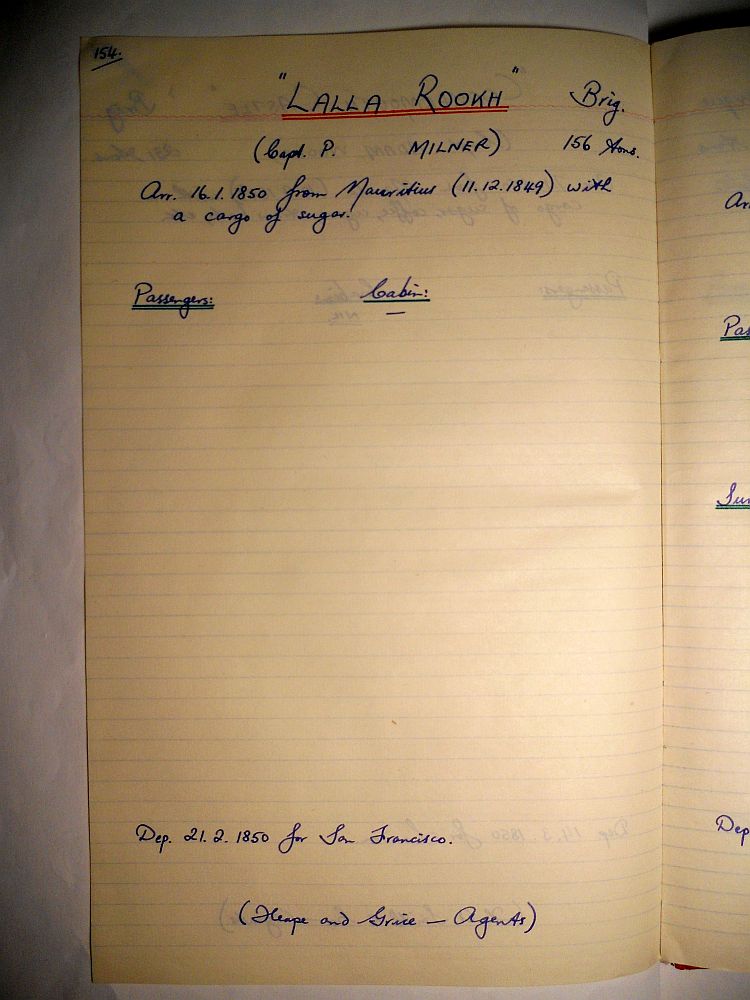 154.
"LALLA ROOKH" Brig.
(Capt. P. MILNER) 156 Tons.
Arr. 16.1.1850 from Mauritius (11.12.1849) with
a cargo of sugar.
Passengers: Cabin:
—
Dep. 21.2.1850 for San Francisco.
(Heape and Grice — Agents)
Arr
Pas
Dep